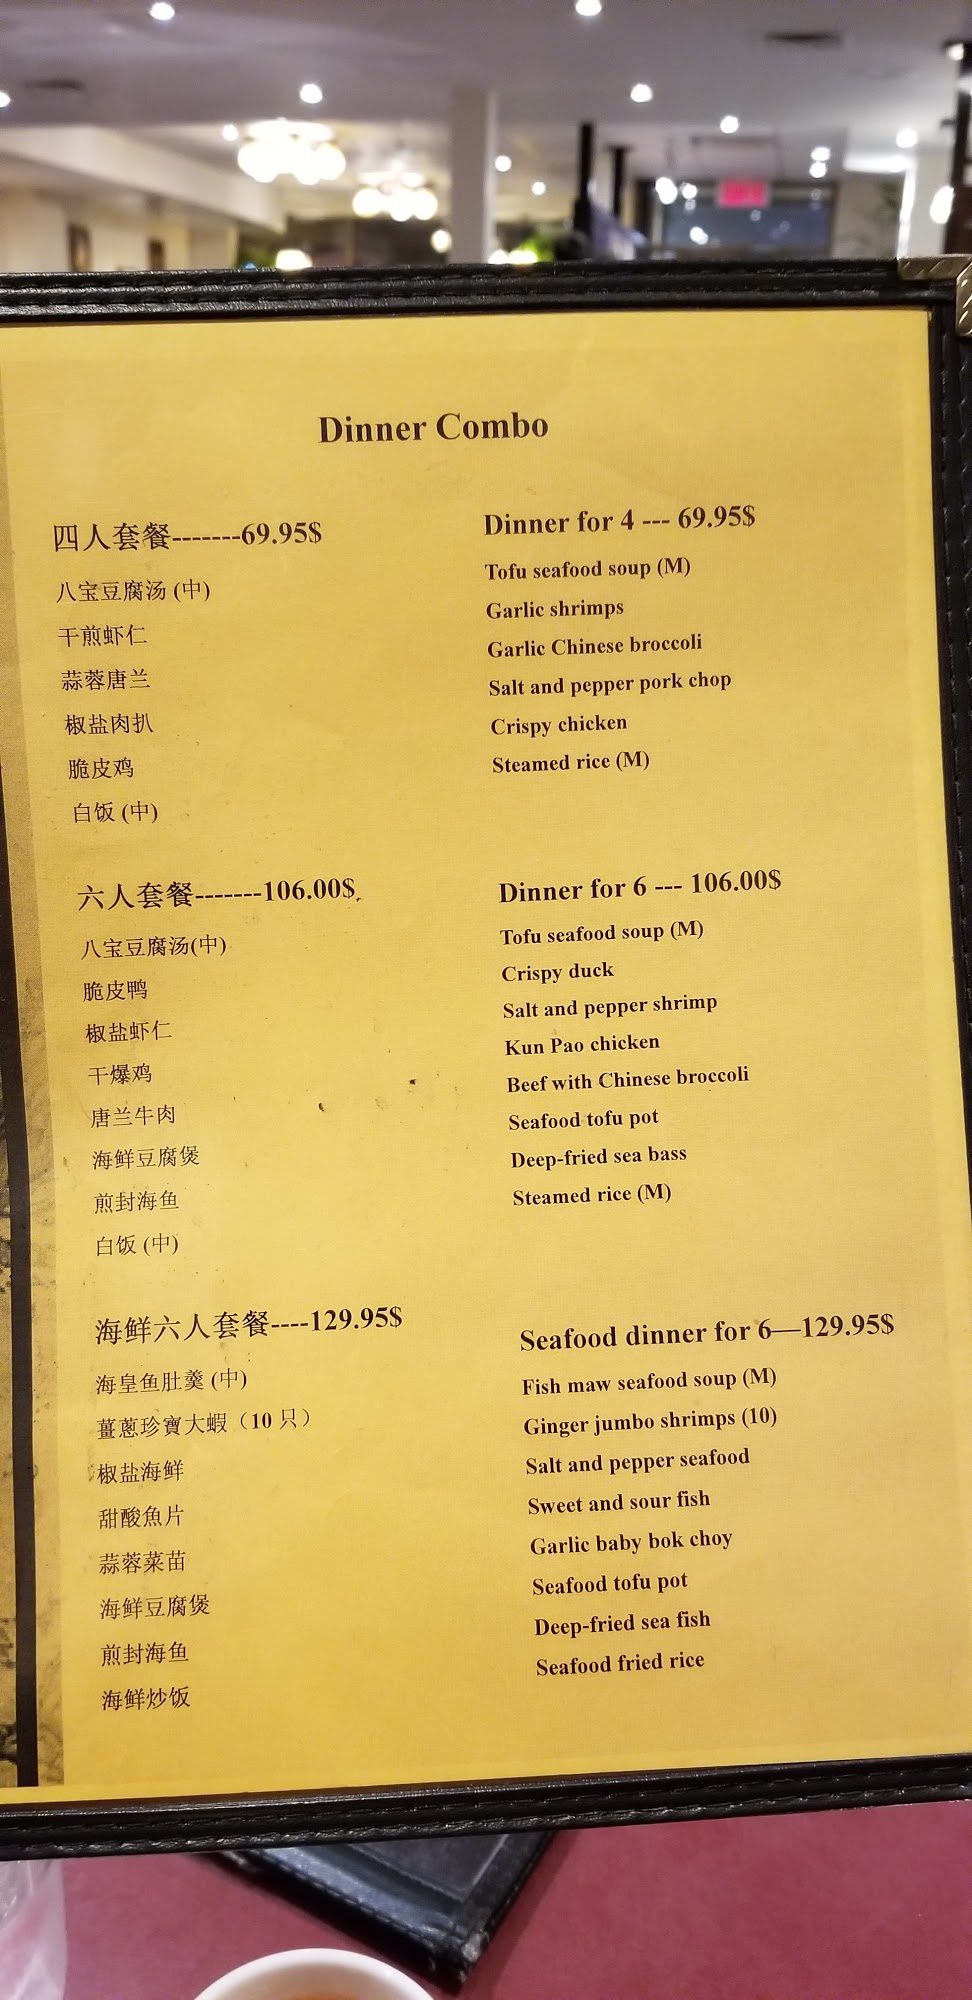 Dinner Combo
四人套餐-------69.95$
八宝豆腐汤 (中)
干煎虾仁
蒜蓉唐兰
椒盐肉扒
脆皮鸡
白饭 (中)
Dinner for 4 --- 69.95$
Tofu seafood soup (M)
Garlic shrimps
Garlic Chinese broccoli
Salt and pepper pork chop
Crispy chicken
Steamed rice (M)
六人套餐-------106.00$
八宝豆腐汤(中)
脆皮鸭
椒盐虾仁
干爆鸡
唐兰牛肉
海鲜豆腐煲
煎封海鱼
白饭 (中)
Dinner for 6 --- 106.00$
Tofu seafood soup (M)
Crispy duck
Salt and pepper shrimp
Kun Pao chicken
Beef with Chinese broccoli
Seafood tofu pot
Deep-fried sea bass
Steamed rice (M)
海鲜六人套餐----129.95$
海皇鱼肚羹 (中)
薑蔥珍寶大蝦（10 只）
椒盐海鲜
甜酸魚片
蒜蓉菜苗
海鲜豆腐煲
煎封海鱼
海鲜炒饭
Seafood dinner for 6—129.95$
Fish maw seafood soup (M)
Ginger jumbo shrimps (10)
Salt and pepper seafood
Sweet and sour fish
Garlic baby bok choy
Seafood tofu pot
Deep-fried sea fish
Seafood fried rice